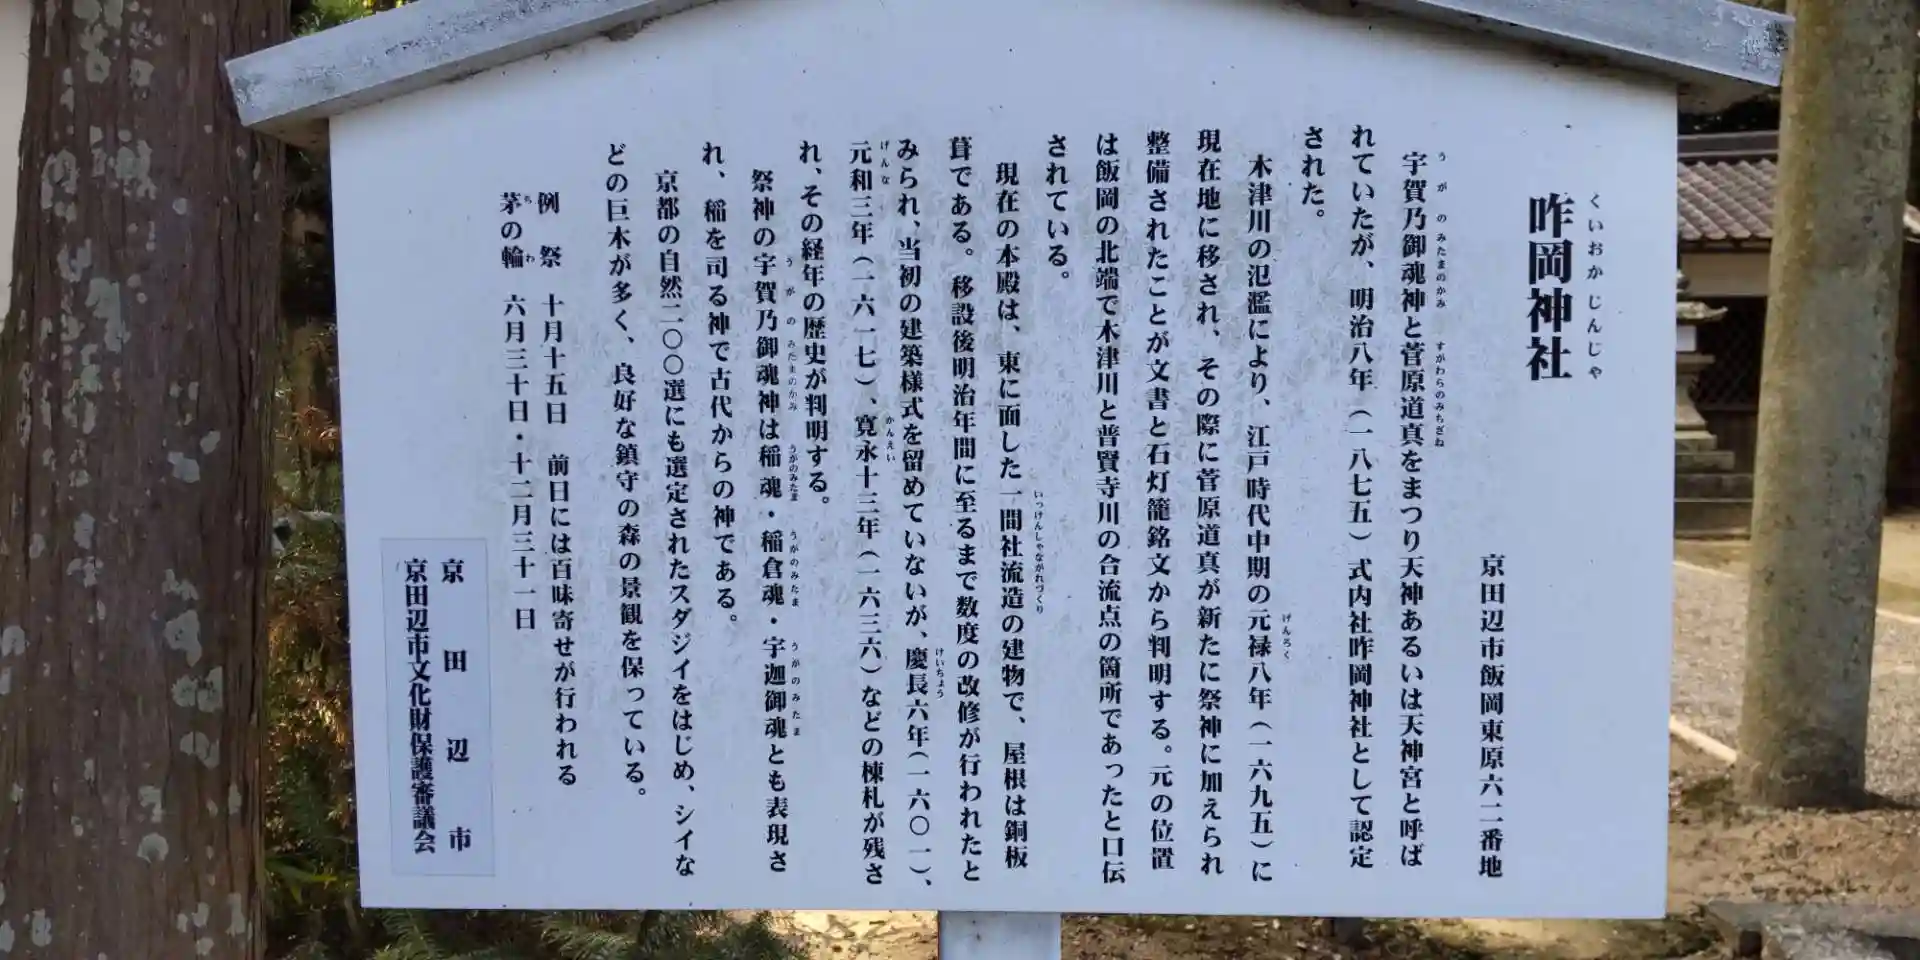 咋岡神社
くいおかじんじゃ
京田辺市飯岡東原六二番地
宇賀乃御魂神と菅原道真をまつり天神あるいは天神宮と呼ば
うがのみたまのかみ すがわらのみちざね
れていたが、明治八年（一八七五）式内社咋岡神社として認定
された。
木津川の氾濫により、江戸時代中期の元禄八年（一六九五）に
げんろく
現在地に移され、その際に菅原道真が新たに祭神に加えられ
整備されたことが文書と石灯籠銘文から判明する。元の位置
は飯岡の北端で木津川と普賢寺川の合流点の箇所であったと口伝
されている。
現在の本殿は、東に面した一間社流造の建物で、屋根は銅板
いっけんしゃながれづくり
葺である。移設後明治年間に至るまで数度の改修が行われたと
みられ、当初の建築様式を留めていないが、慶長六年（一六〇一）、
けいちょう
元和三年（一六一七）、寛永十三年（一六三六）などの棟札が残さ
げんな かんえい
れ、その経年の歴史が判明する。
祭神の宇賀乃御魂神は稲魂・稲倉魂・宇迦御魂とも表現さ
うがのみたまのかみ うがのみたま うがのみたま うがのみたま
れ、稲を司る神で古代からの神である。
京都の自然二〇〇選にも選定されたスダジイをはじめ、シイな
どの巨木が多く、良好な鎮守の森の景観を保っている。
例祭 十月十五日 前日には百味寄せが行われる
茅の輪 六月三十日・十二月三十一日
ち わ
京田辺市
京田辺市文化財保護審議会